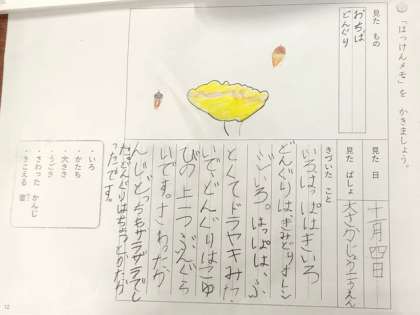 「はっけんメモ」を かきましょう。
見た 日
十一月四日
見た ばしょ
見た もの
おちば
どんぐり
きづいた こと
いろはっぱはきいろ
どんぐりはきみどりオレン
ジいろ。はっぱは、ふ
とくてドラヤキみた
いで、どんぐりはこゆ
びの上一つぶんぐら
いです。さわったか
んじどっちもサラサラでし
た。どんぐりはちょっとかたか
ったです。
・いろ
・かたち
・大きさ
・うごき
・さわった かんじ
・きこえる 音
12